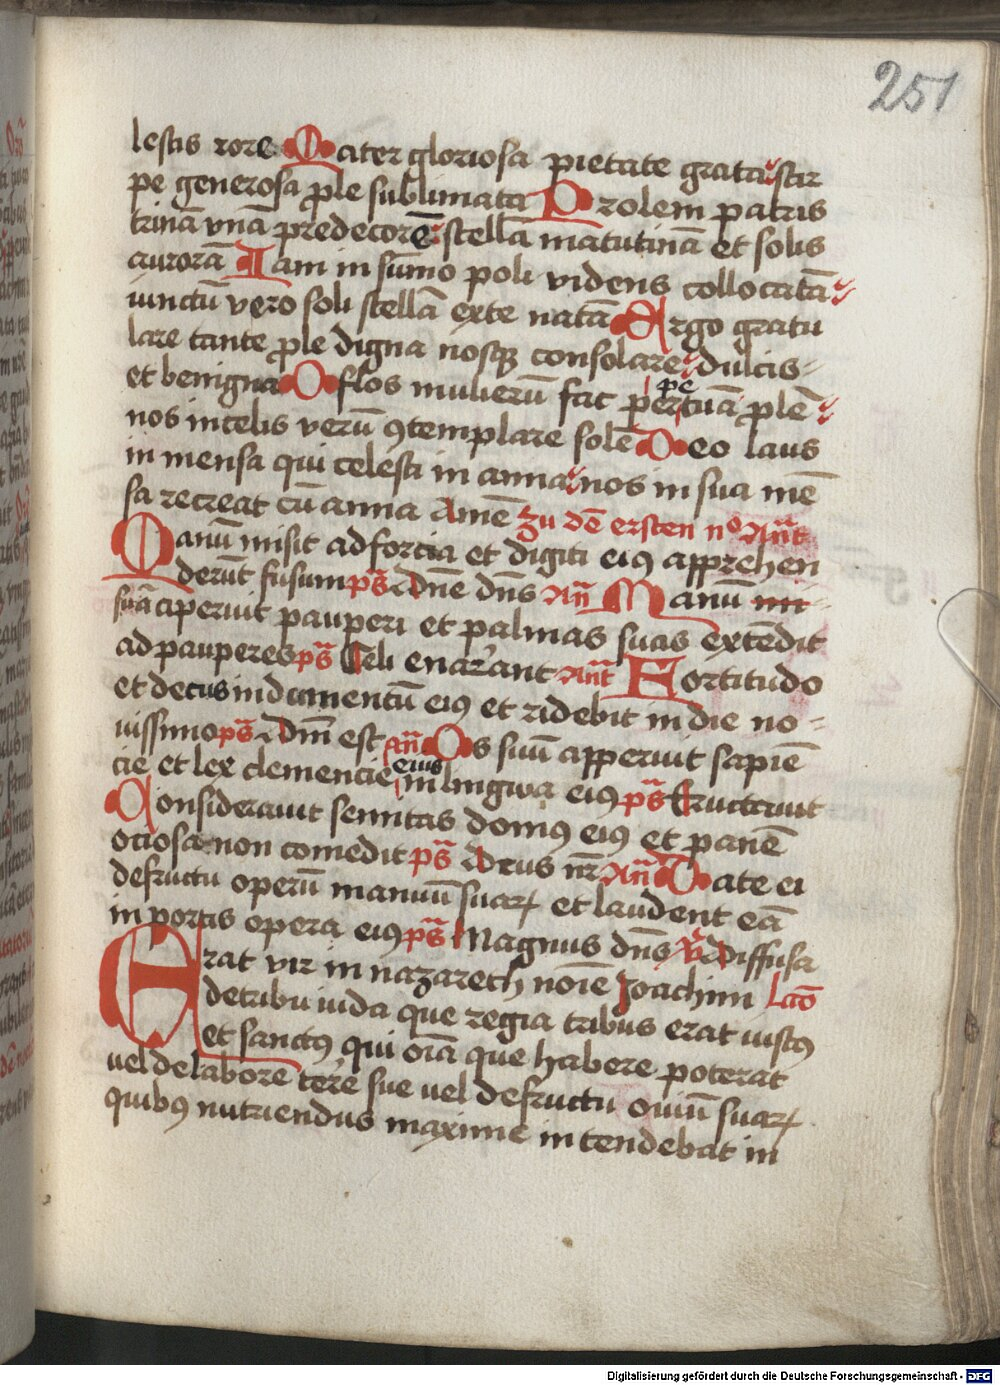 251
lestis rore Mater gloriosa pietate grata stir
pe generosa ꝓle sublimata Prolem patris
trinā vnā predecorē stellā matutinā et solis
aurorā Iam in sūmo poli videns collocatā
iunctū vero soli stellā exte natā Ergo gratu
lare tante ꝓle digna nosqꝫ consolare dulcis
et benigna O flos mulierū fac ꝑpetuā ꝓlē
nos incelis verū ꝯtemplare solē Deo laus
in mensa qui celesti in anna nos in sua mē
sa recreat cū anna Amē zu dē ersten nº Añt
Manū misit ad forcia et digiti eiꝰ apprehen
derūt fusum pš Dñe dñs Añ Manū
suā aperuit pauperi et palmas suas extēdit
ad pauperes pš Celi enarrant Añt Fortitudo
et decus indumentū eiꝰ et ridebit in die no
uissimo pš Dñi est añ Os suū apperuit sapiē
cie et lex clemencie eius in lingwa eiꝰ pš Eructauit
Considerauit semitas domꝰ eiꝰ et panē
ociosa non comedit pš Deus nr̄ Añ Date ei
defructu operū manuū suarꝝ et laudent eā
in portis opera eiꝰ pš Magnus dñs v̄ Diffusa
Erat vir in nazareth noīe Joachim Lc̄o
detribu iuda que regia tribus erat iustꝰ
et sanctꝰ qui oīa que habere poterat
vel delabore terre sue vel defructu ouiū suarꝝ
quibꝰ nutriendus maxime intendebat in
Digitalisierung gefördert durch die Deutsche Forschungsgemeinschaft - DFG